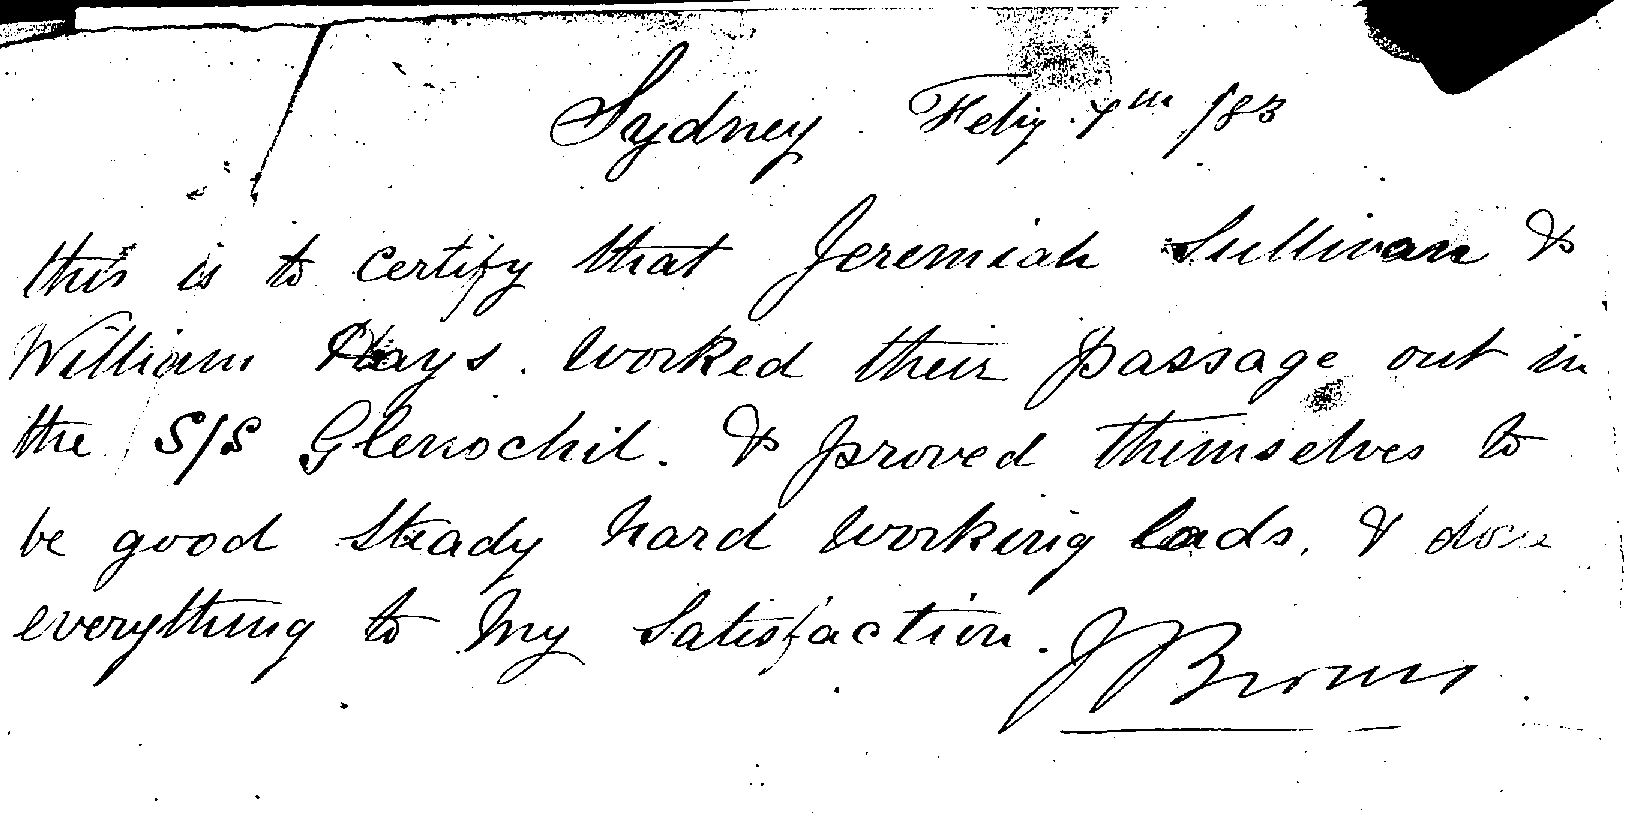 Sydney Feby. 7th /83
this is to certify that Jeremiah Sullivan &
William Hays. worked their passage out in
the S/S Glenochil. & proved themselves to
be good steady hard working lads. & done
everything to my satisfaction.
J Brown